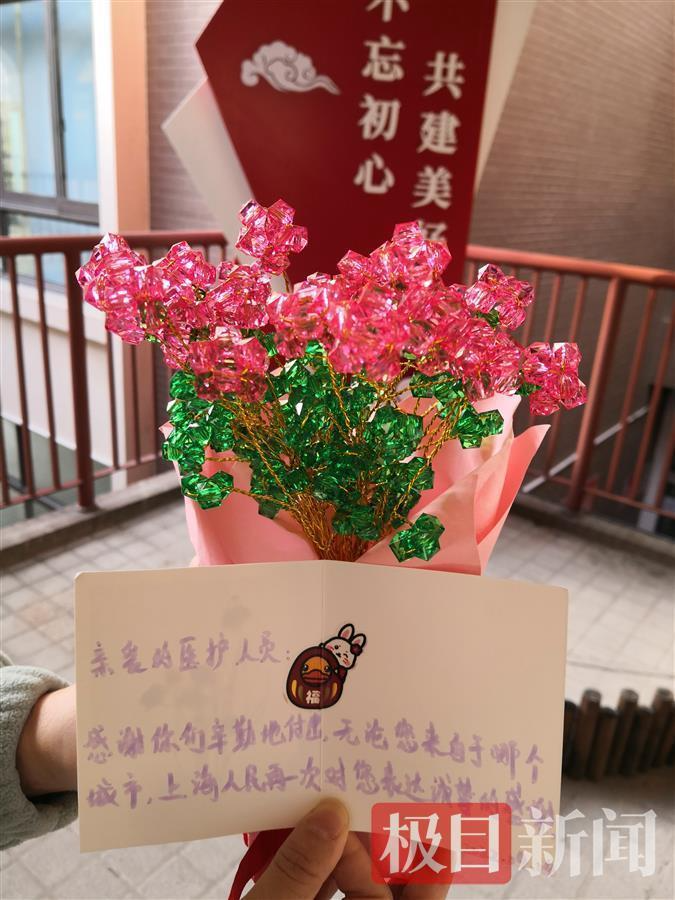 不忘初心
共建美好
亲爱的医护人员：
福
感谢你们辛勤地付出，无论您来自于哪个
城市，上海人民再一次对您表达诚挚的感谢
极目新闻